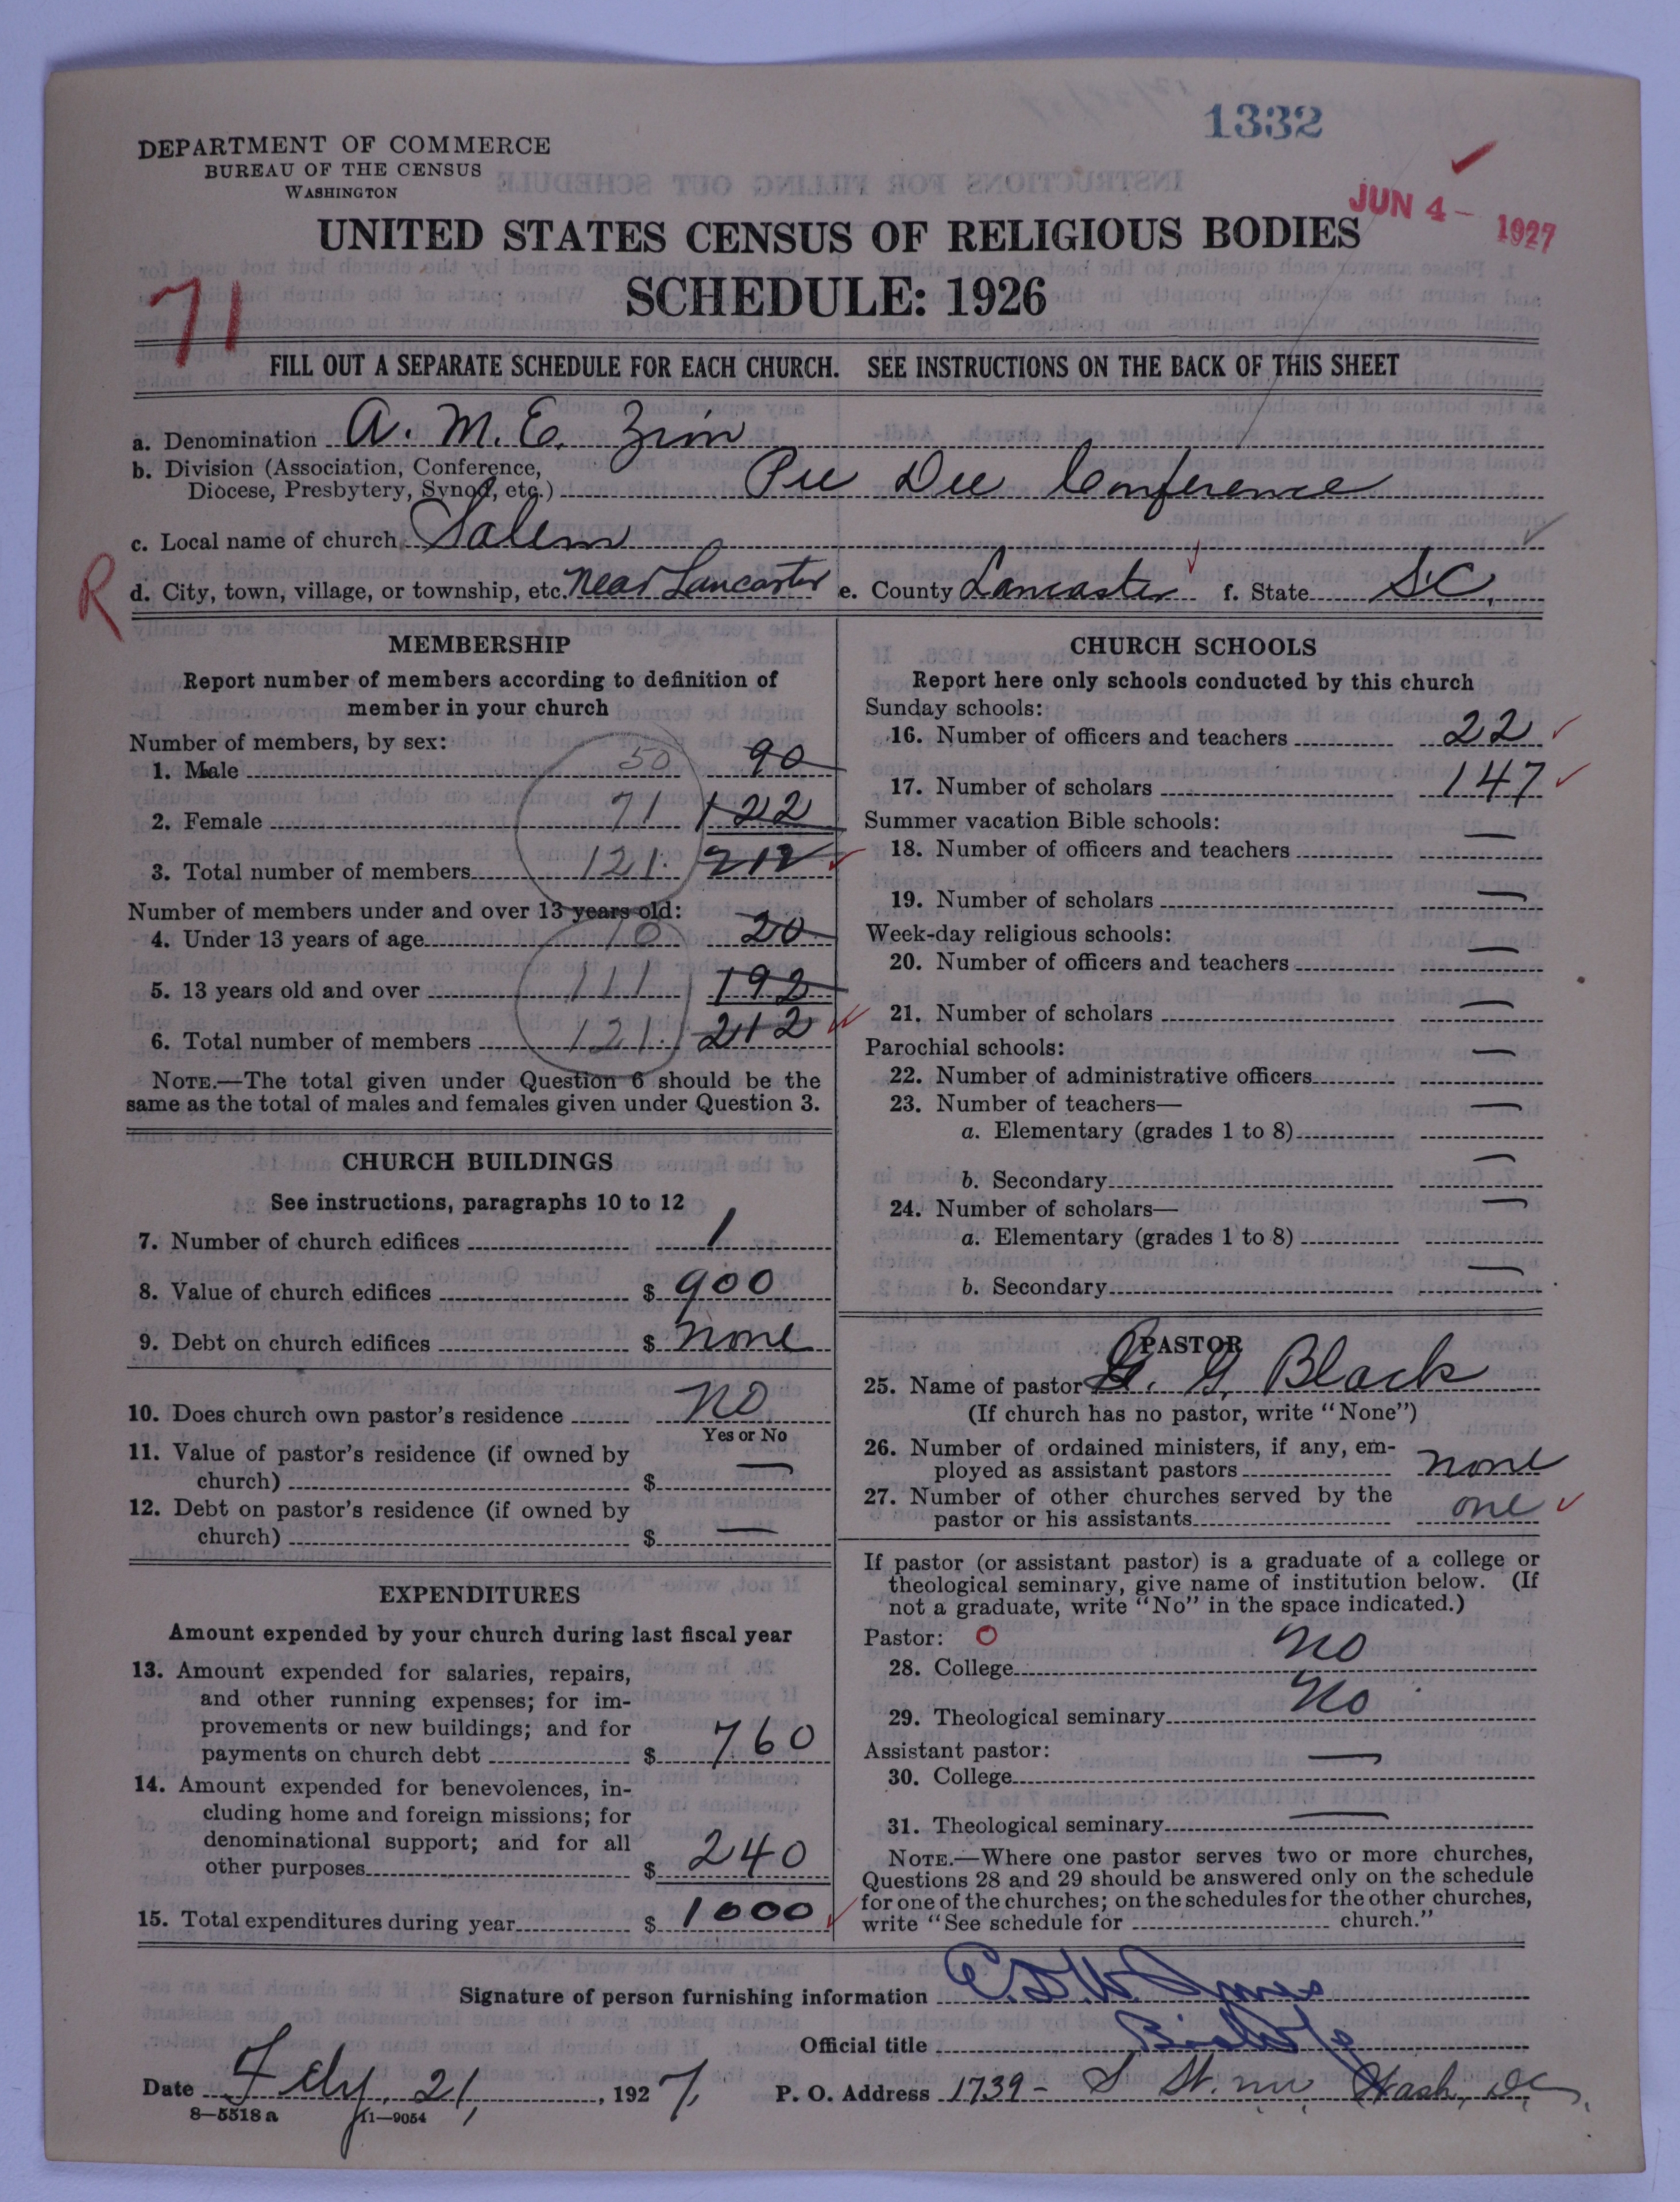 1332
DEPARTMENT OF COMMERCE
BUREAU OF THE CENSUS
WASHINGTON
JUN 4 - 1927
UNITED STATES CENSUS OF RELIGIOUS BODIES
SCHEDULE: 1926
71
FILL OUT A SEPARATE SCHEDULE FOR EACH CHURCH. SEE INSTRUCTIONS ON THE BACK OF THIS SHEET
a. Denomination A. M. E. Zion
b. Division (Association, Conference,
Diocese, Presbytery, Synod, etc.) Pee Dee Conference
c. Local name of church Salem
R
d. City, town, village, or township, etc. Near Lancaster e. County Lancaster f. State S.C.
MEMBERSHIP
Report number of members according to definition of
member in your church
Number of members, by sex:
1. Male 50 90
2. Female 71 122
3. Total number of members 121 212
Number of members under and over 13 years old:
4. Under 13 years of age 10 20
5. 13 years old and over 111 192
6. Total number of members 121 212
NOTE.—The total given under Question 6 should be the
same as the total of males and females given under Question 3.
CHURCH BUILDINGS
See instructions, paragraphs 10 to 12
7. Number of church edifices 1
8. Value of church edifices $ 900
9. Debt on church edifices $ none
10. Does church own pastor's residence no
Yes or No
11. Value of pastor's residence (if owned by
church) $ —
12. Debt on pastor's residence (if owned by
church) $ —
EXPENDITURES
Amount expended by your church during last fiscal year
13. Amount expended for salaries, repairs,
and other running expenses; for im-
provements or new buildings; and for
payments on church debt $ 760
14. Amount expended for benevolences, in-
cluding home and foreign missions; for
denominational support; and for all
other purposes $ 240
15. Total expenditures during year $ 1000
CHURCH SCHOOLS
Report here only schools conducted by this church
Sunday schools:
16. Number of officers and teachers 22
17. Number of scholars 147
Summer vacation Bible schools:
18. Number of officers and teachers —
19. Number of scholars —
Week-day religious schools:
20. Number of officers and teachers —
21. Number of scholars —
Parochial schools:
22. Number of administrative officers —
23. Number of teachers—
a. Elementary (grades 1 to 8) —
b. Secondary —
24. Number of scholars—
a. Elementary (grades 1 to 8) —
b. Secondary —
PASTOR
25. Name of pastor G. G. Black
(If church has no pastor, write "None")
26. Number of ordained ministers, if any, em-
ployed as assistant pastors none
27. Number of other churches served by the
pastor or his assistants one
If pastor (or assistant pastor) is a graduate of a college or
theological seminary, give name of institution below. (If
not a graduate, write "No" in the space indicated.)
Pastor: O
28. College no
29. Theological seminary No
Assistant pastor:
30. College —
31. Theological seminary —
NOTE.—Where one pastor serves two or more churches,
Questions 28 and 29 should be answered only on the schedule
for one of the churches; on the schedules for the other churches,
write "See schedule for church."
Signature of person furnishing information E.D.W. Jones
Official title Bishop
Date Feby. 21, 1927, P. O. Address 1739 - S St. nw Wash, DC,
8—5518a 11—9054